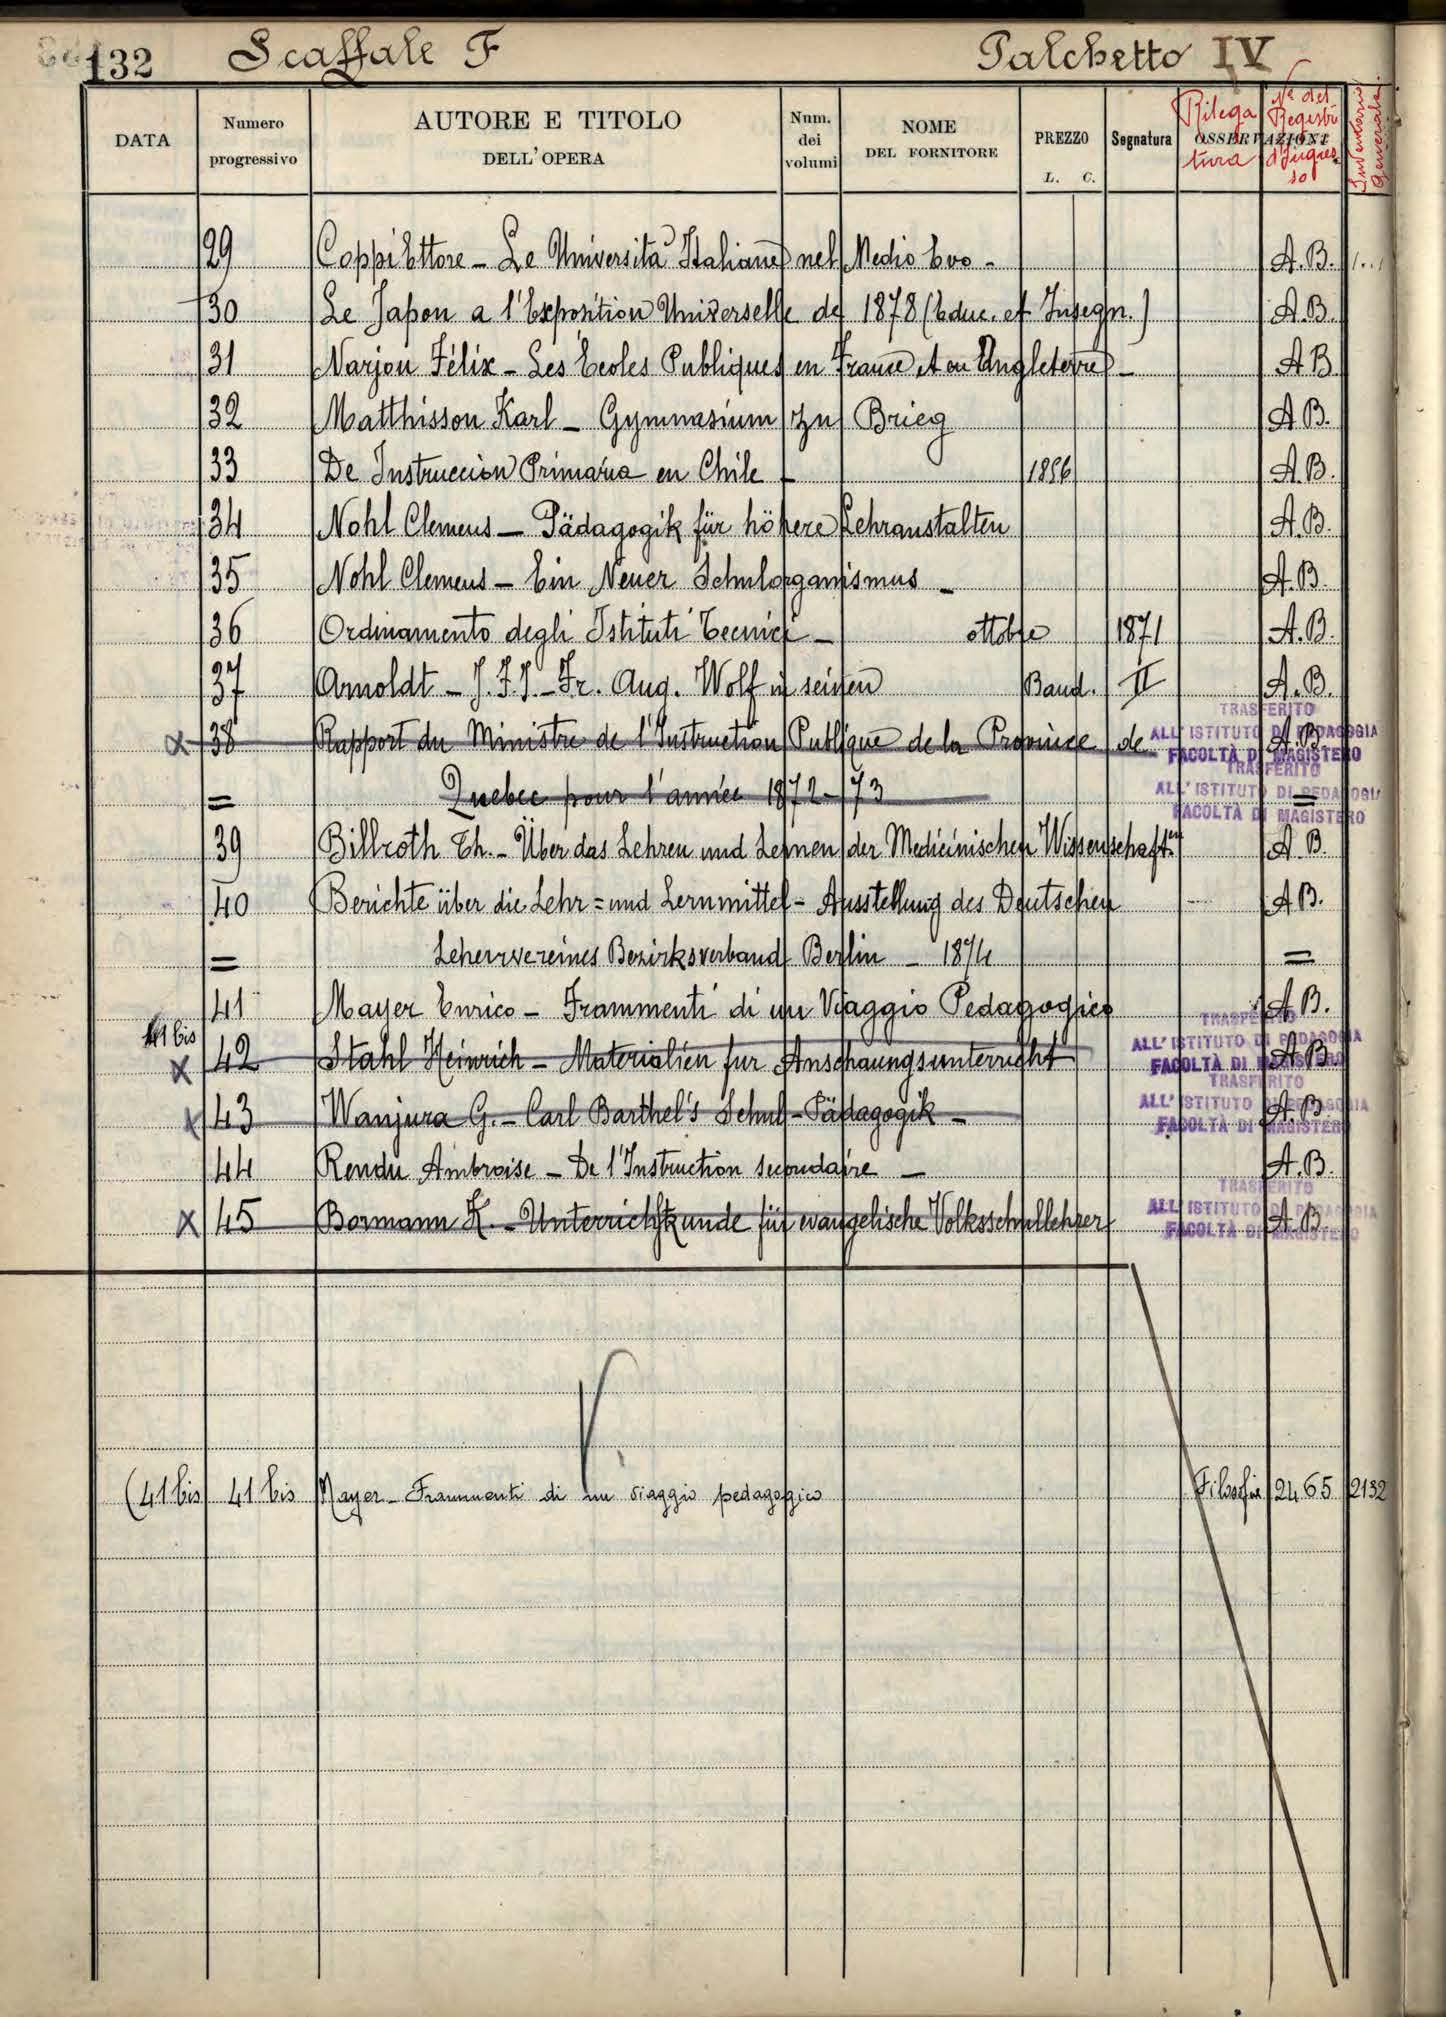 132 Scaffale F Palchetto IV
DATA Numero progressivo AUTORE E TITOLO DELL'OPERA Num. dei volumi NOME DEL FORNITORE PREZZO L. C. Segnatura OSSERVAZIONI
Rilegatura Nº del Registro d'Ingresso Inventario Generale
29 Coppi Ettore - Le Università Italiane nel Medio Evo - A.B.
30 Le Japon a l'Exposition Universelle de 1878 (Educ. et Insegn.) A.B.
31 Narjou Félix - Les Ecoles Publiques en France et en Angleterre - A B
32 Matthisson Karl - Gymnasium zu Brieg A B.
33 De Instruccion Primaria en Chile - 1856 A.B.
34 Nohl Clemens - Pädagogik für höhere Lehranstalten A.B.
35 Nohl Clemens - Ein Neuer Schulorganismus - A.B.
36 Ordinamento degli Istituti Tecnici - ottobre 1871 A.B.
37 Arnoldt - J.F.J. - Fr. Aug. Wolf in seinen Band. II A.B.
x 38 Rapport du Ministre de l'Instruction Publique de la Province de A.B.
TRASFERITO
ALL'ISTITUTO DI PEDAGOGIA
FACOLTÀ DI MAGISTERO
= Quebec pour l'année 1872-73 =
TRASFERITO
ALL'ISTITUTO DI PEDAGOGIA
FACOLTÀ DI MAGISTERO
39 Billroth Th. - Über das Lehren und Lernen der Medicinischen Wissenschaften A B.
40 Berichte über die Lehr= und Lernmittel - Ausstellung des Deutschen A B.
= Leherrvereines Bezirksverband Berlin - 1874 =
41 Mayer Enrico - Frammenti di un Viaggio Pedagogico A B.
41 bis
x 42 Stahl Heinrich - Materialien fur Anschaungsunterricht A.B.
TRASFERITO
ALL'ISTITUTO DI PEDAGOGIA
FACOLTÀ DI MAGISTERO
x 43 Wanjura G. - Carl Barthel's Schul - Pädagogik - A.B.
TRASFERITO
ALL'ISTITUTO DI PEDAGOGIA
FACOLTÀ DI MAGISTERO
44 Rendu Ambroise - De l'Instruction secondaire - A.B.
x 45 Bormann K. - Unterrichtkunde für evangelische Volksschullehrer A.B.
TRASFERITO
ALL'ISTITUTO DI PEDAGOGIA
FACOLTÀ DI MAGISTERO
(41 bis 41 bis Mayer - Frammenti di un viaggio pedagogico Filosofia 2465 2132